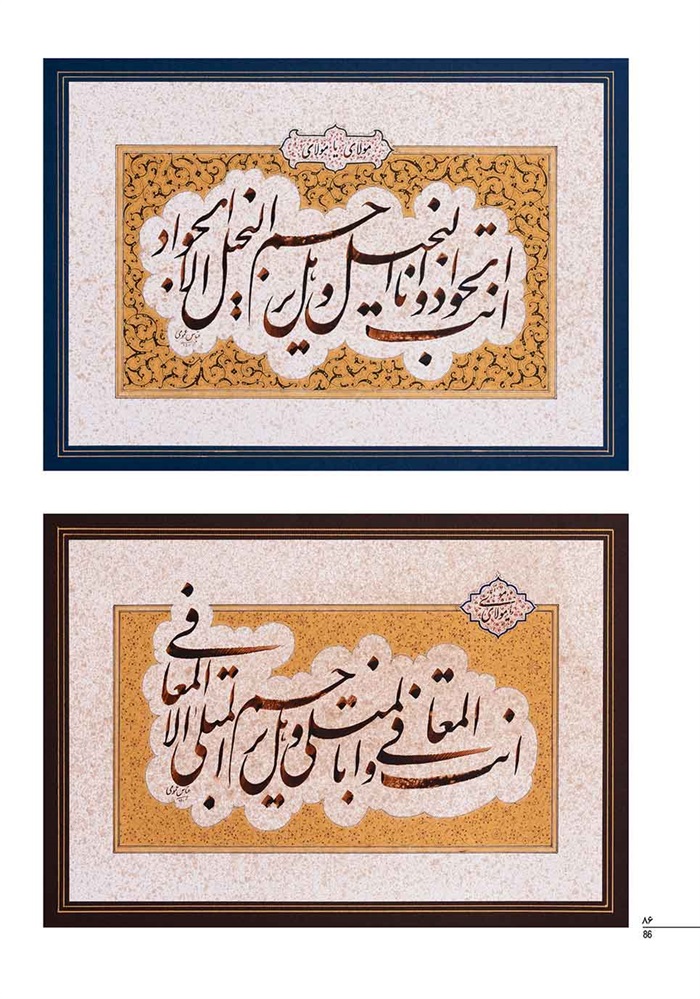 مولای یا مولای
انت الجواد و انا البخیل و هل یرحم البخیل الا الجواد
مولای یا مولای
انت المعافی و انا المبتلی و هل یرحم المبتلی الا المعافی
۸۶
86